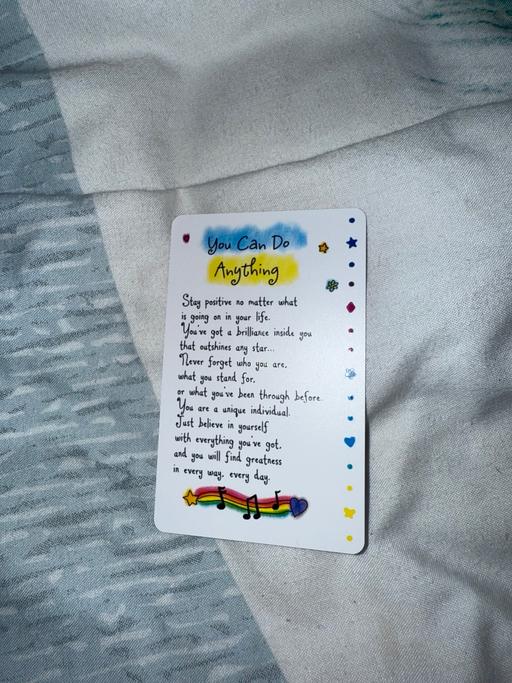 You Can Do
Anything
Stay positive no matter what
is going on in your life.
You've got a brilliance inside you
that outshines any star...
Never forget who you are,
what you stand for,
or what you've been through before.
You are a unique individual.
Just believe in yourself
with everything you've got,
and you will find greatness
in every way, every day.